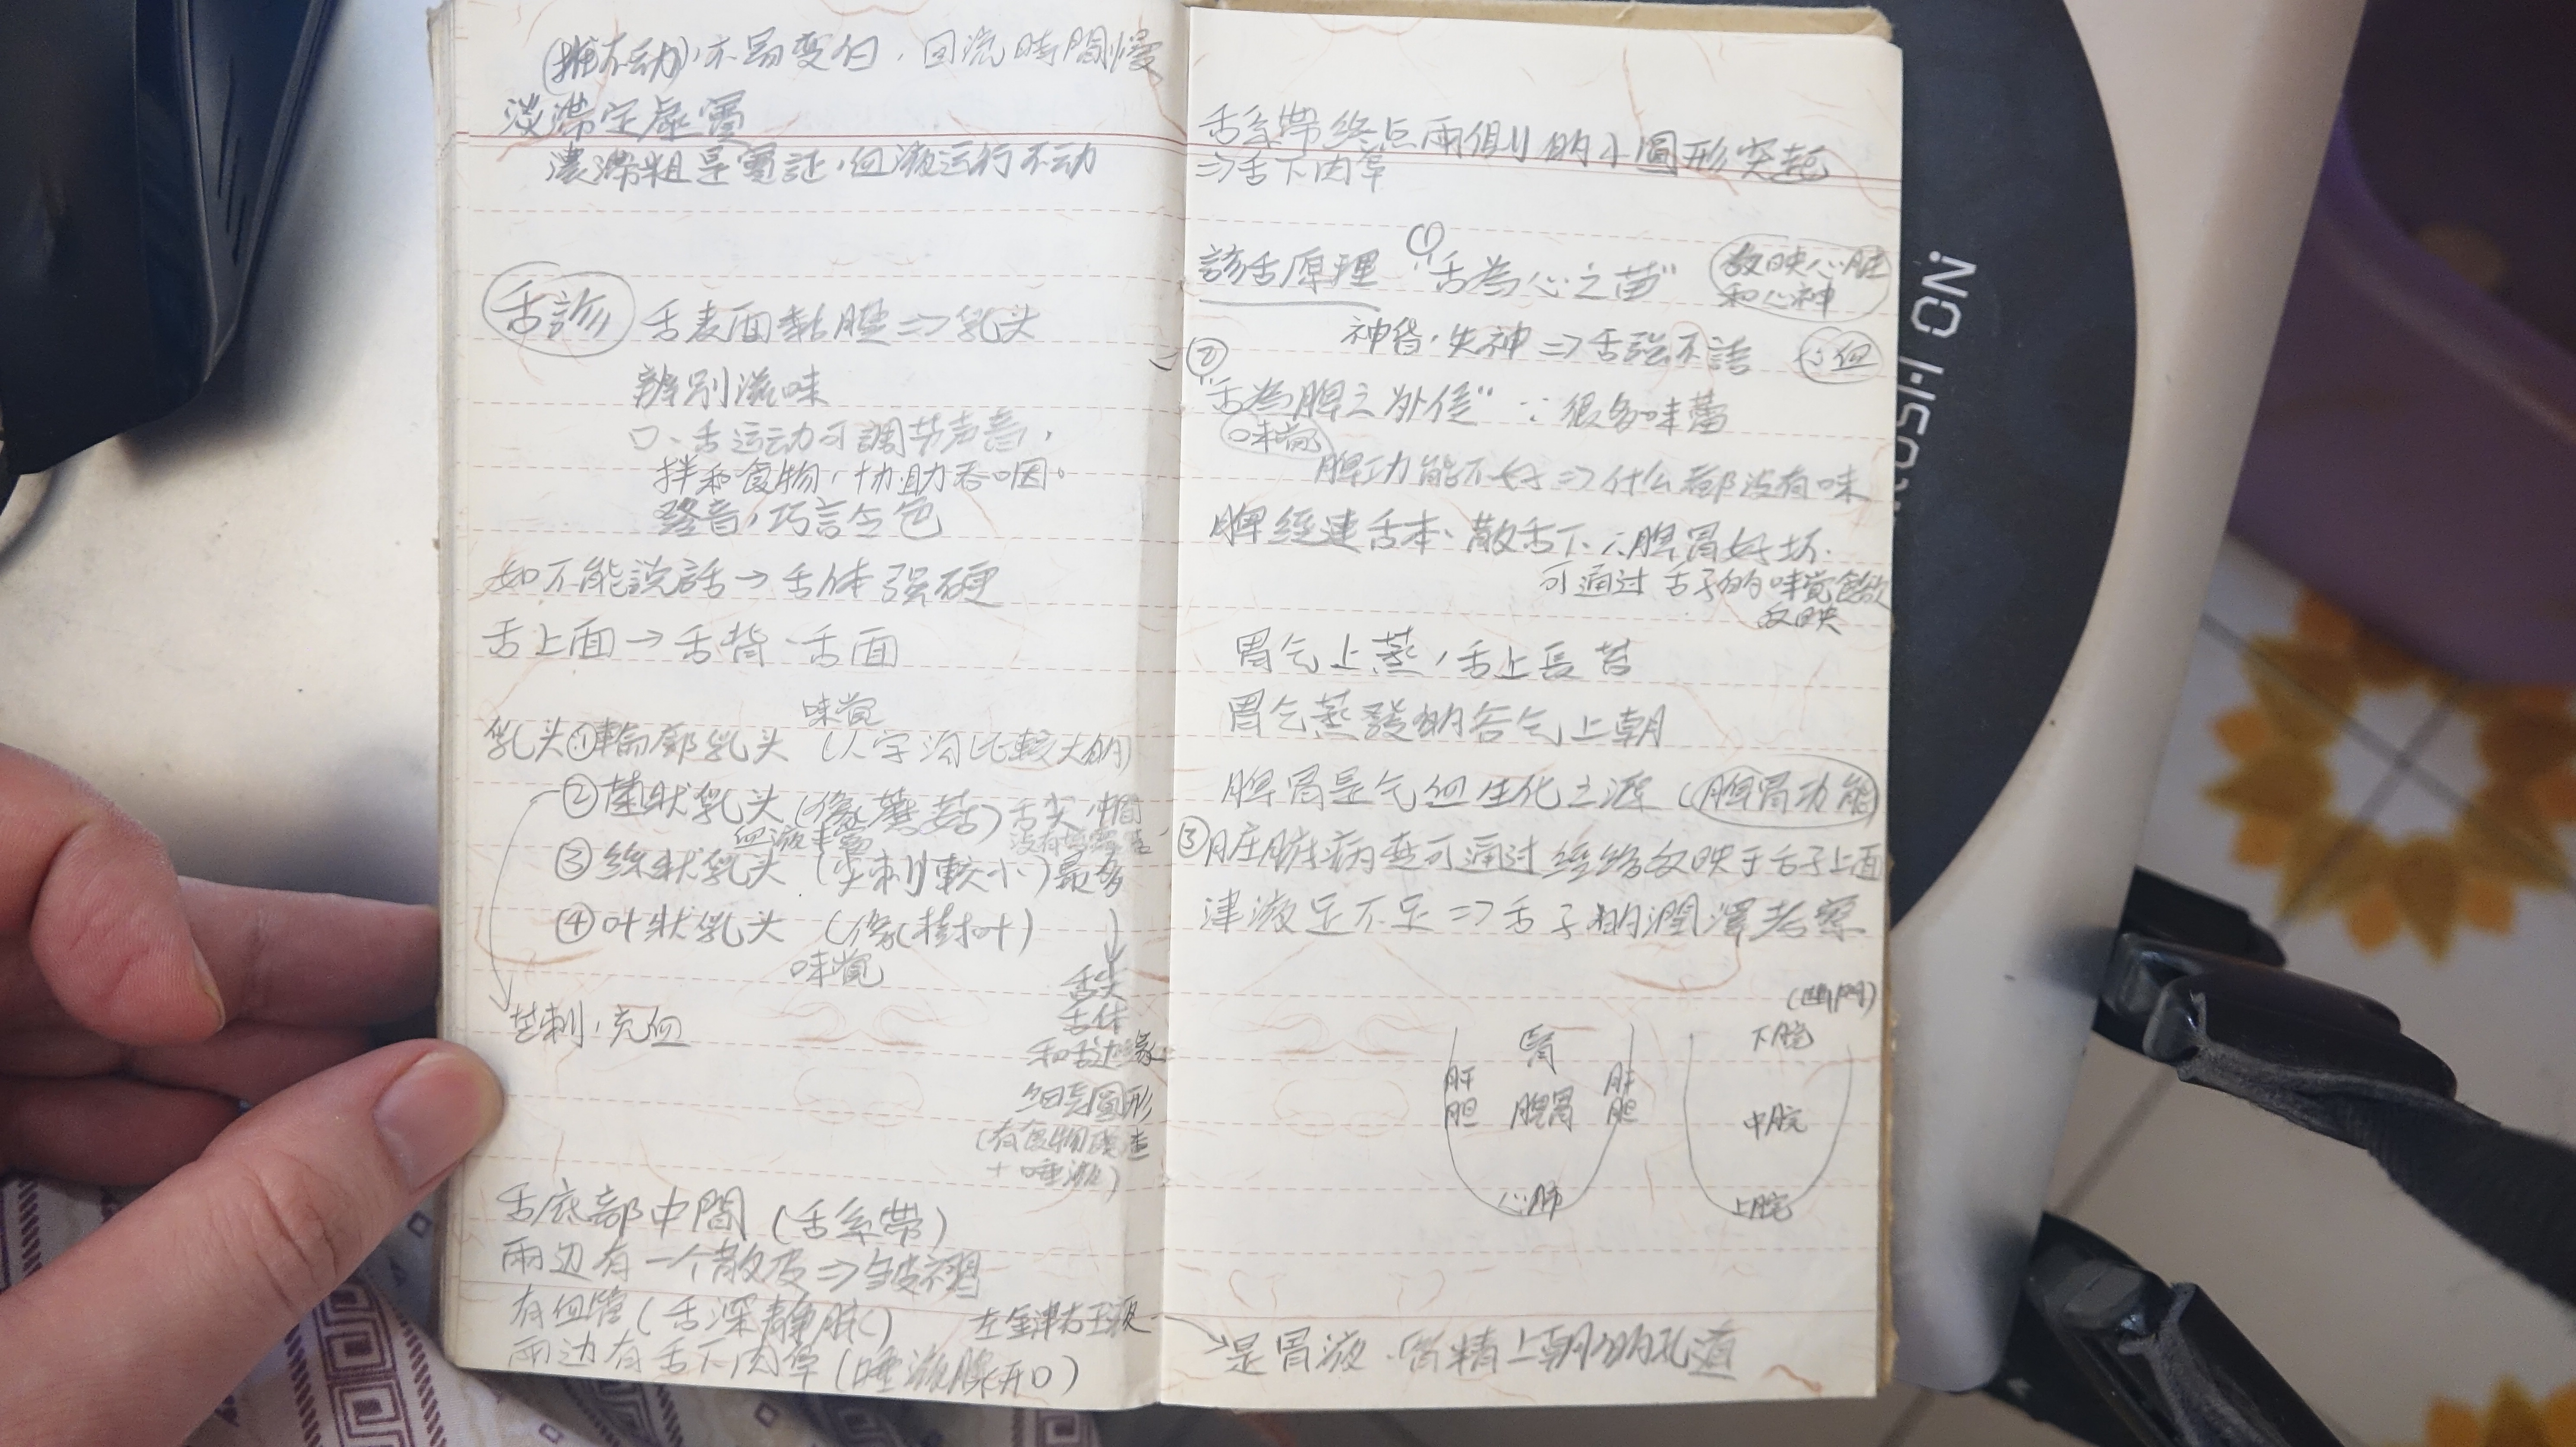 (推不动),不易变白,回流時間慢
淡滞定虛實
濃滞粗是實証,血液运行不动
舌診 舌表面黏膜⇒乳头
辨別滋味
口、舌运动可調节声音,
拌和食物,协助吞咽。
發音,巧言令色
如不能說話→舌体强硬
舌上面→舌背、舌面
味觉
乳头①輪廓乳头(人字沟比較大的)
②菌狀乳头(像蘑菇)舌尖、中間
血液丰富
③絲狀乳头(尖刺較小)最多
④叶狀乳头(像樹叶)
味覚
舌尖
舌体
和舌边緣
芒刺,充血
細長圓形
(有食物碴渣
+唾液)
舌底部中間(舌系带)
兩边有一个散皮⇒皱褶
有血管(舌深静脉) 左金津右玉液
兩边有舌下肉阜(唾液腺开口)
舌系带終点兩側的小圓形突起
⇒舌下肉阜
診舌原理 ①"舌為心之苗" 反映心脏
和心神
神昏,失神⇒舌强不語 心血
②
"舌為脾之外候"∵很多味蕾
味觉
脾功能不好⇒什么都没有味
脾經連舌本、散舌下∴脾胃好坏.
可通过舌子的味觉食欲
反映
胃气上蒸,舌上長苔
胃气蒸發的谷气上朝
脾胃是气血生化之源(脾胃功能)
③脏腑病变可通过經絡反映于舌子上面
津液足不足⇒舌子的潤澤
(幽門)
腎 下脘
肝 肝
胆 脾胃 胆 中脘
心肺 上脘
是胃液、腎精上朝的孔道
NO HSO